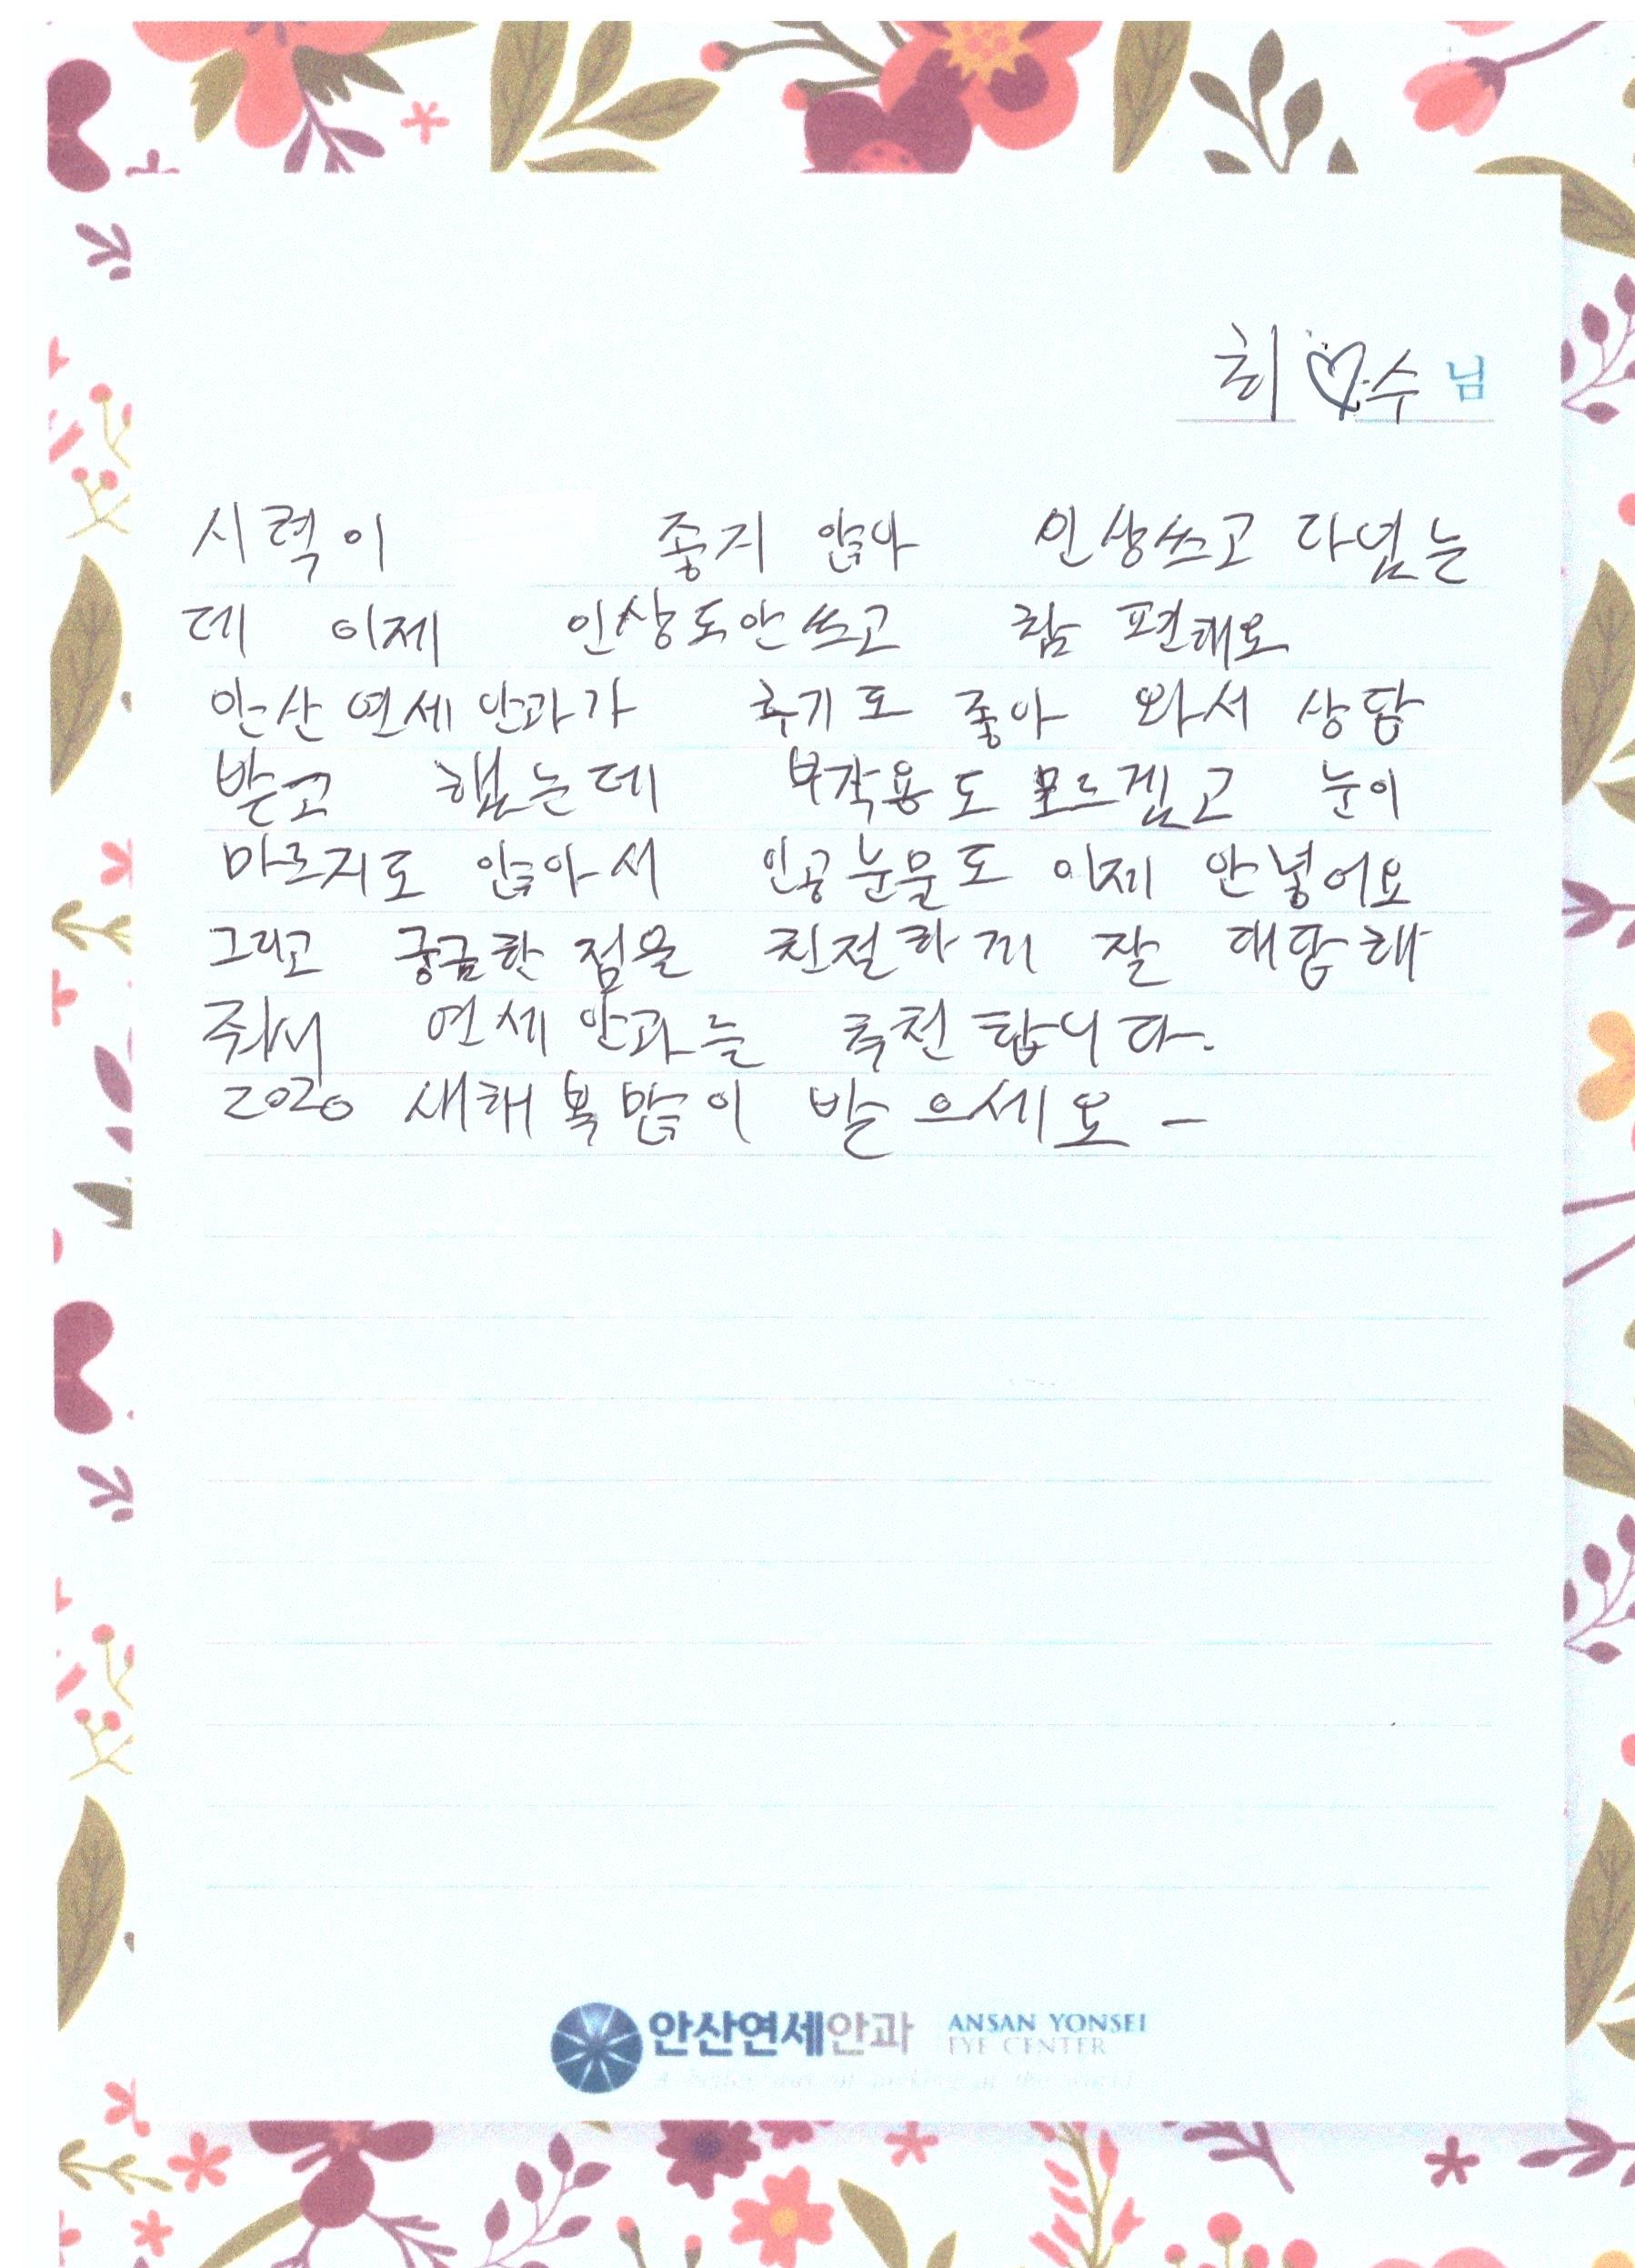 최♡수 님
시력이 좋지 않아 인상쓰고 다녔는
데 이제 인상도 안쓰고 참 편해요
안산연세안과가 후기도 좋아 와서 상담
받고 했는데 부작용도 모르겠고 눈이
마르지도 않아서 인공눈물도 이제 안넣어요
그리고 궁금한 점을 친절하게 잘 대답해
줘서 연세안과는 추천합니다.
2020 새해 복 많이 받으세요 -
안산연세안과 ANSAN YONSEI
EYE CENTER